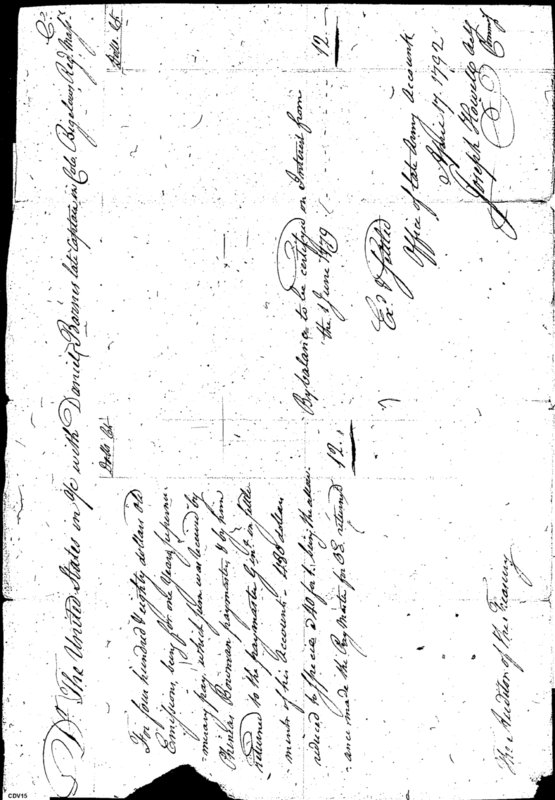 Dr The United States in a/c with Daniel Barnes late Captain in Colo. Bigelows Reg. Mass. Cr.
Dolls Cts
For four hundred & eighty dollars Old
Emission, being for one Years
pay, which sum was received by
Phinehas Bowman paymaster, & by him
returned to the paymaster Gen! in settle
ment of his Account. 480 dollars
reduced to specie is 12 being the allow
ance made the PayMaster for OE. returned 12.
Dolls Cts
By balance to be certified on Interest from
the 1 June 1779 12.
Exd & Settled
Office of late Army accounts
April 17. 1792
Joseph Howell
The Auditor of the Treasury
CDV15